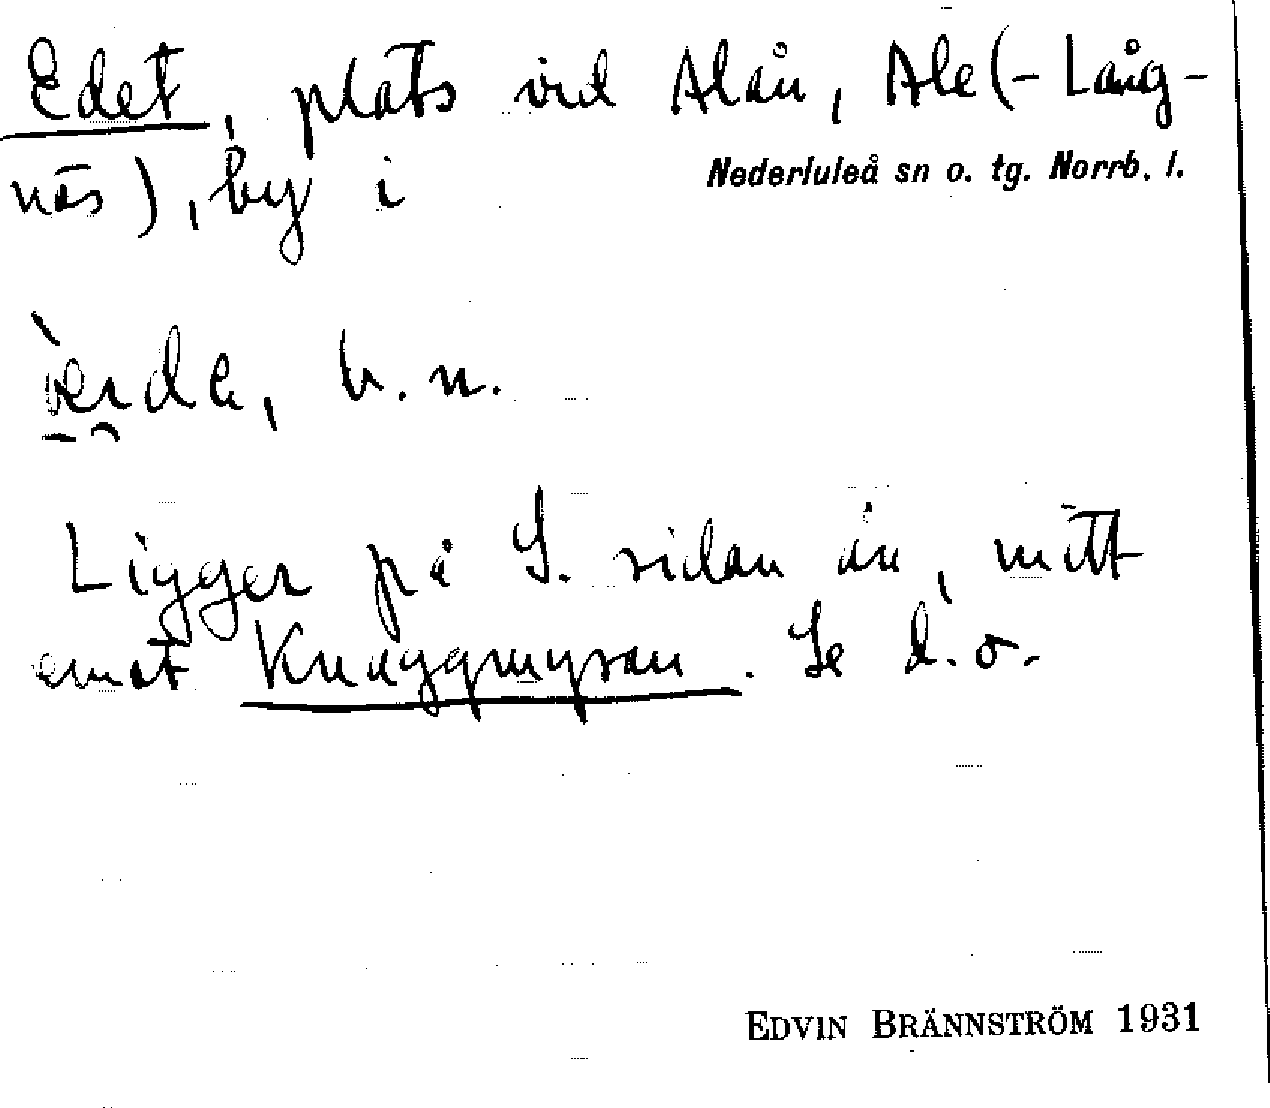 Edet, plats vid Alån, Ale(-Lång-
näs), by i Nederluleå sn o. tg. Norrb. l.
b. n.
Ligger på S. sidan ån, mitt
emot Knaggmyran. Se d. o.
EDVIN BRÄNNSTRÖM 1931